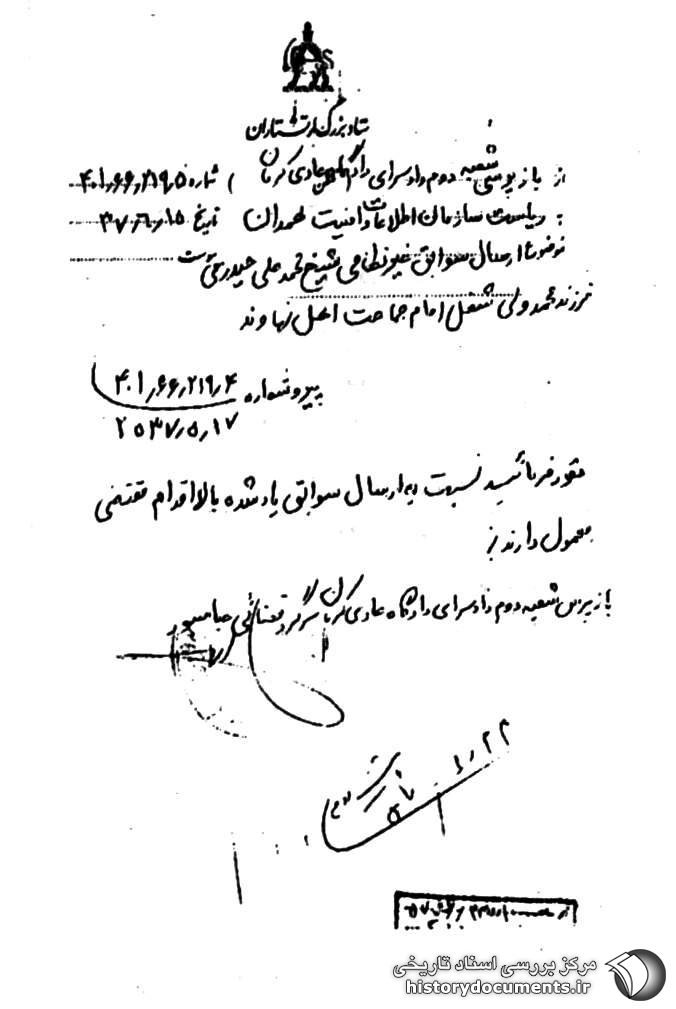 ستاد بزرگ ارتشتاران
از بازپرسی شعبه دوم دادسرای دادگاه عادی کرمان شماره ۴۰۱٫۶۶٫۲۱۹٫۵
به ریاست سازمان اطلاعات و امنیت همدان تاریخ ۳۷٫۶٫۱۵
موضوع ارسال سوابق غیرنظامی شیخ محمد علی حیدری
فرزند محمد ولی شغل امام جماعت اهل نهاوند
پیرو شماره ۴۰۱٫۶۶٫۲۱۹٫۴
۲۵۳۷٫۵٫۱۷
مقرر فرمائید نسبت به ارسال سوابق یاد شده بالا اقدام مقتضی
معمول دارند
بازپرس شعبه دوم دادسرای دادگاه عادی کرمان سرگرد قضائی
مرکز بررسی اسناد تاریخی
historydocuments.ir